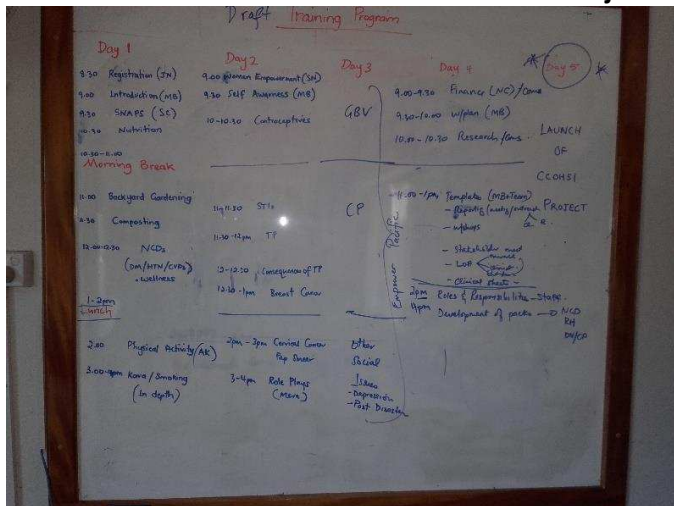 Draft Training Program
Day 1
8.30 Registration (JN)
9.00 Introduction (MB)
9.30 SNAPS (SC)
10.30 Nutrition
10.30-11.00
Morning Break
11.00 Backyard Gardening
11.30 Composting
12.00-12.30 NCDs
(DM/HTN/CVDs)
wellness
1-2pm
Lunch
2.00 Physical Activity (AK)
3.00-4pm Kava/Smoking
(In depth)
Day 2
9.00 Women Empowerment (SN)
9.30 Self Awarness (MB)
10-10.30 Contraceptives
11-11.30 STIs
11.30-12pm TP
12-12.30 Consequences of TP
12.30-1pm Breast Cancer
2pm-3pm Cervical Cancer
Pap Smear
3-4pm Role Plays
(Mere)
Day 3
GBV
CP
Other
Social
Issues
-Depression
-Post Disaster
Empower Pacific
Day 4
9.00-9.30 Finance (NC)
9.30-10.00 w/plan (MB)
10.00-10.30 Research
11.00-1pm Templates (MB+Team)
- Reporting
- Stakeholder
- Clinical sheets
2pm Roles & Responsibilities - Staff
4pm Development of packs → NCD
RH
Day 5
LAUNCH
OF
CCOHSI
PROJECT